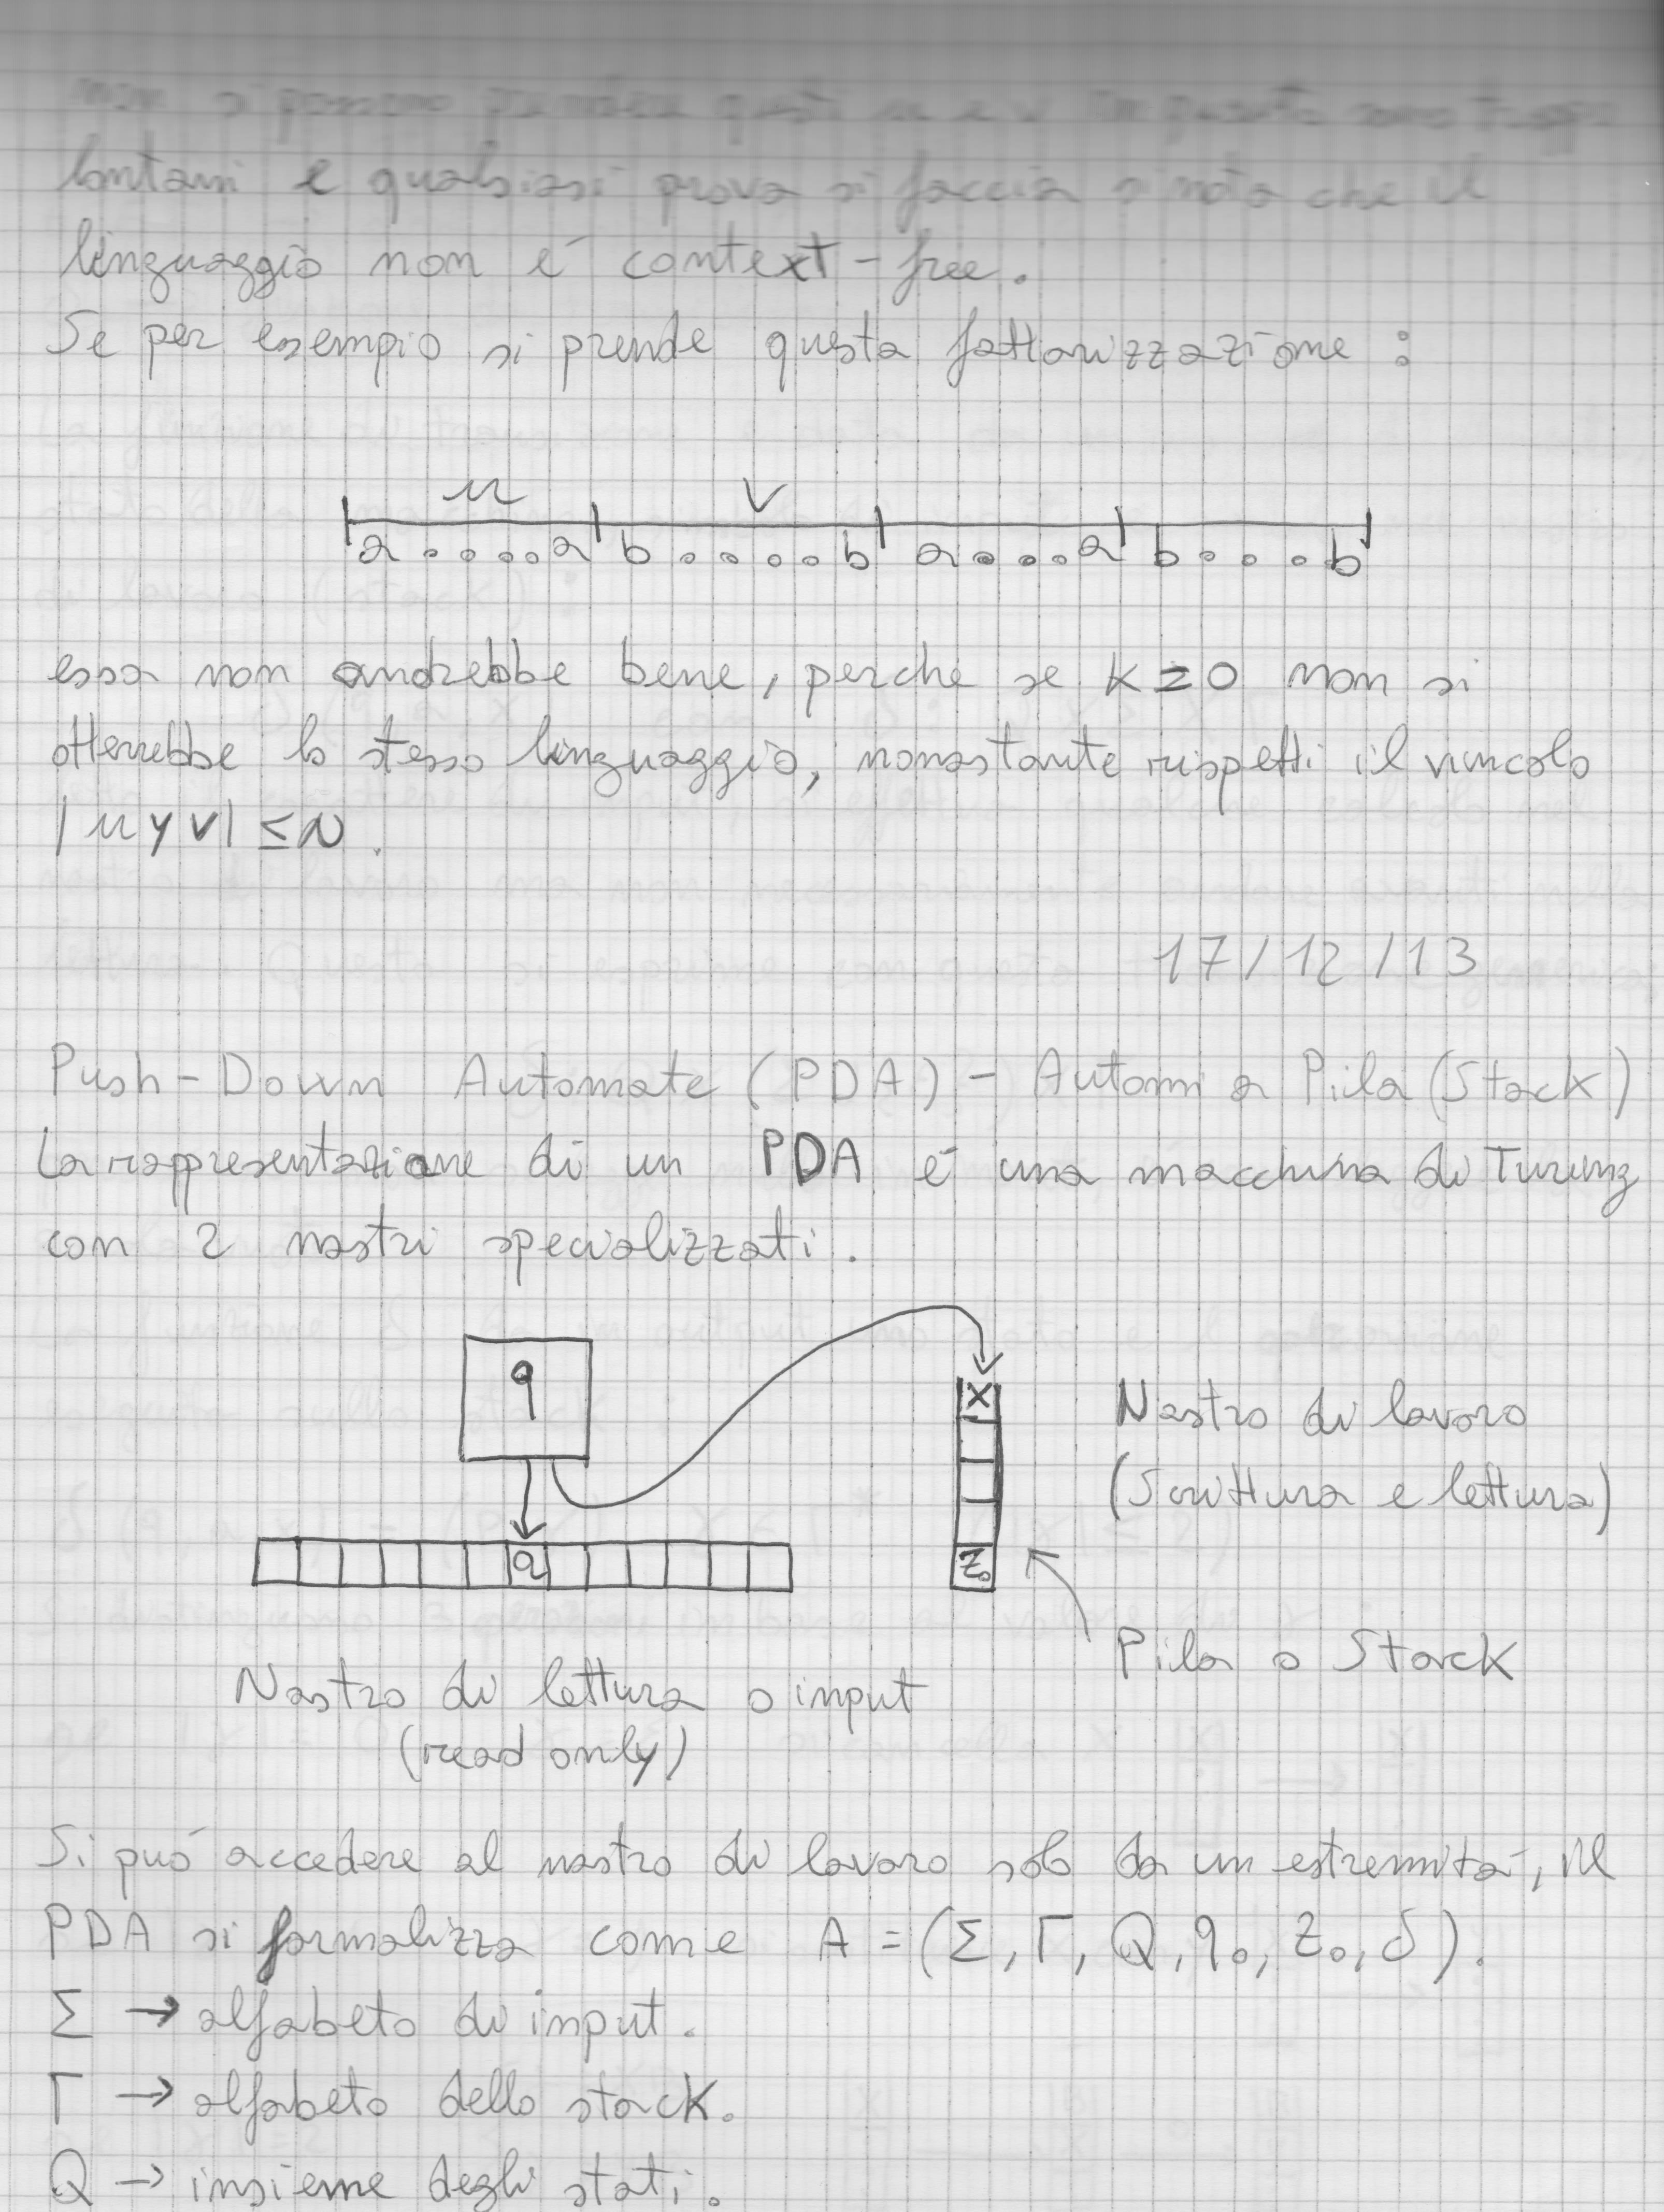 non si possono prendere questi u e v in quanto sono troppo
lontani e qualsiasi prova si faccia si nota che il
linguaggio non é context-free.
Se per esempio si prende questa fattorizzazione :
u v
a....a b....b a....a b....b
essa non andrebbe bene, perché se K=0 non si
otterrebbe lo stesso linguaggio, nonostante rispetti il vincolo
|uyv| ≤ N.
17/12/13
Push-Down Automate (PDA) - Automi a Pila (Stack)
La rappresentazione di un PDA é una macchina di Turing
con 2 nastri specializzati.
q
X
Nastro di lavoro
(Scrittura e lettura)
a
Z₀
Pila o Stack
Nastro di lettura o input
(read only)
Si puó accedere al nastro di lavoro solo da un estremitá, il
PDA si formalizza come A = (Σ, Γ, Q, q₀, Z₀, δ).
Σ → alfabeto di input.
Γ → alfabeto dello stack.
Q → insieme degli stati.